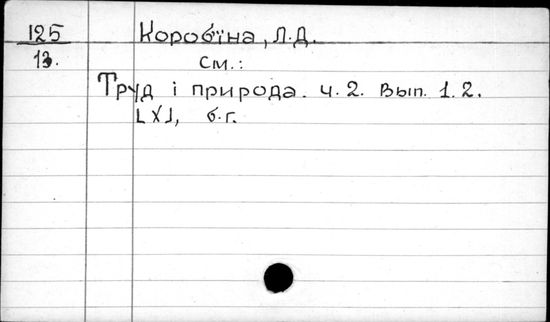 125 Коробіна, Л.Д.
13. См.:
Труд і природа. ч. 2. Вып. 1. 2.
[Х], б.г.